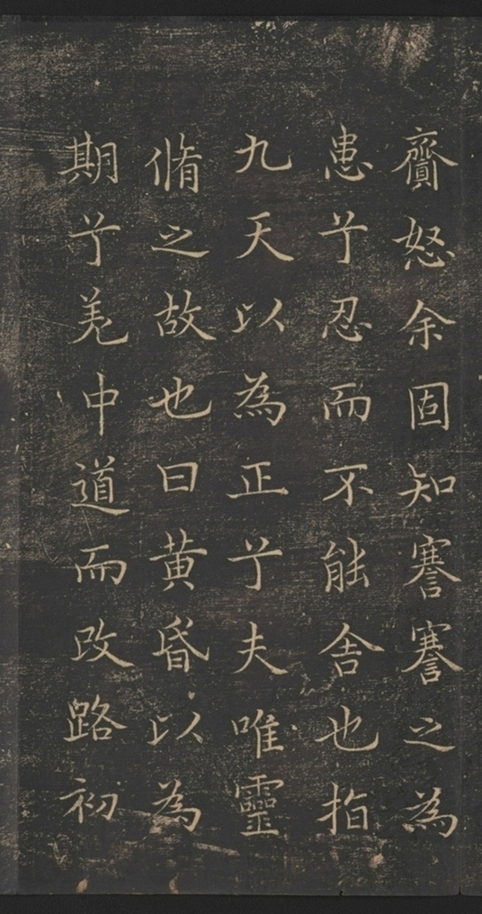 齎怒余固知謇謇之為
患兮忍而不能舍也指
九天以為正兮夫唯靈
脩之故也曰黄昏以為
期兮羌中道而改路初